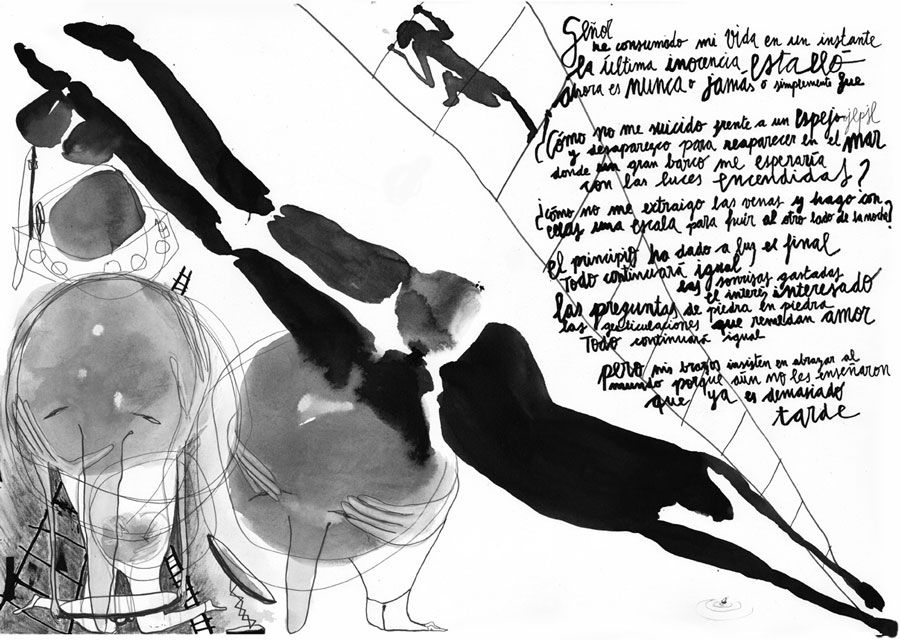 Señor
he consumido mi vida en un instante
la última inocencia estalló
Ahora es nunca o jamás o simplemente fue
¿Cómo no me suicido frente a un espejo
y desaparezco para reaparecer en el mar
donde un gran barco me esperaría
con las luces encendidas?
¿cómo no me extraigo las venas y hago con
ellas una escala para huir al otro lado de la noche?
el principio ha dado a luz el final
Todo continuará igual
las sonrisas gastadas
el interés interesado
las preguntas de piedra en piedra
las gesticulaciones que remedan amor
Todo continuará igual
pero mis brazos insisten en abrazar al
mundo porque aún no les enseñaron
que ya es demasiado
tarde